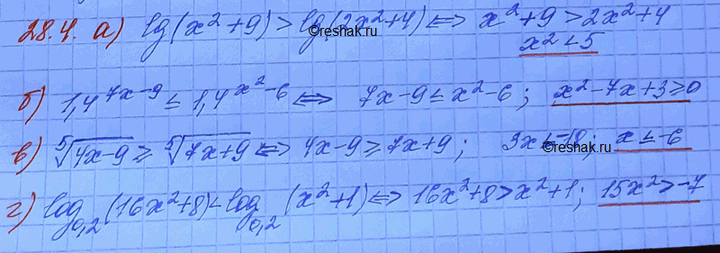 28.4. а) lg(x²+9) > lg(2x²+4) ⇔ x²+9 > 2x²+4
©reshak.ru
x² < 5
б) 1,4^(7x-9) ≤ 1,4^(x²-6) ⇔ 7x-9 ≤ x²-6; x²-7x+3≥0
©reshak.ru
в) ⁵√(4x-9) ≥ ⁵√(7x+9) ⇔ 4x-9 ≥ 7x+9; 3x ≤ -18; x ≤ -6
©reshak.ru
г) log₀,₂(16x²+8) < log₀,₂(x²+1) ⇔ 16x²+8 > x²+1; 15x² > -7